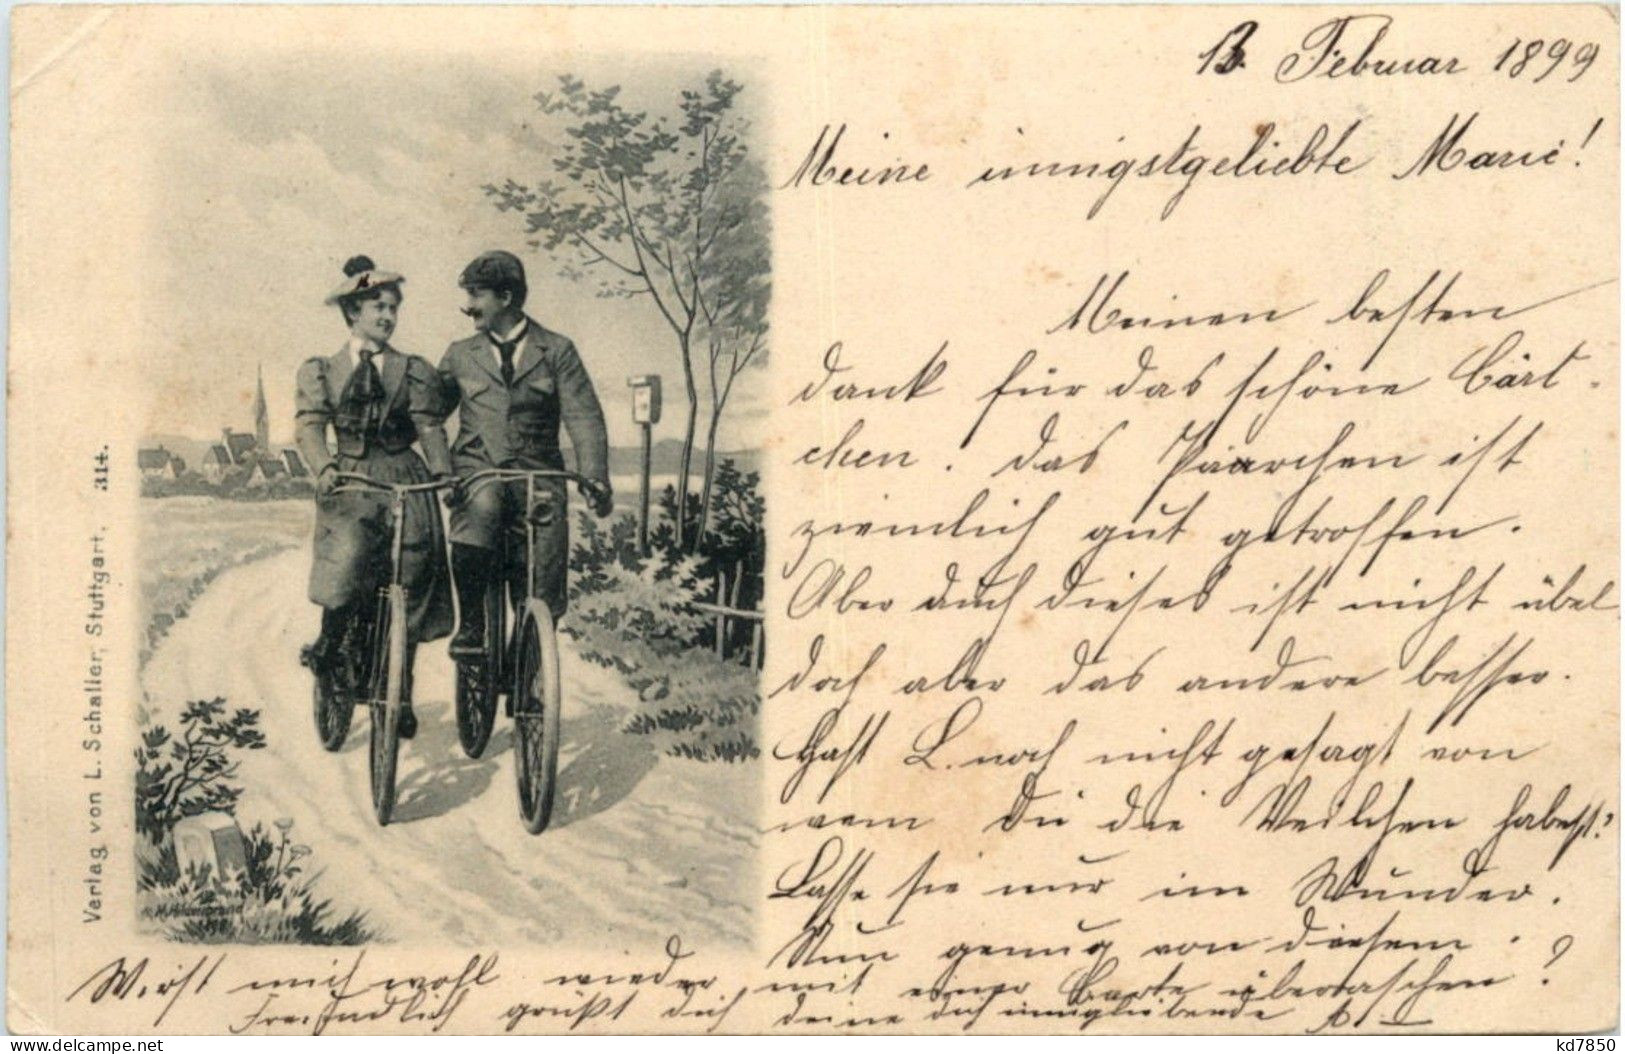 13. Februar 1899
Meine innigstgeliebte Marie!
Meinen besten
dank für das schöne Cärt-
chen. das Päärchen ist
ziemlich gut getroffen.
Aber auch dieses ist nicht übel
doch aber das andere besser.
Hast L. noch nicht gesagt von
wem Du die Veilchen habest?
Lasse sie nur im Wunder.
Nun genug von diesem.
Wirst mich wohl wieder mit einer Carte überraschen?
Freundlich grüßt dich deine dich innigliebende
Verlag von L. Schaller, Stuttgart. 314.
kd7850